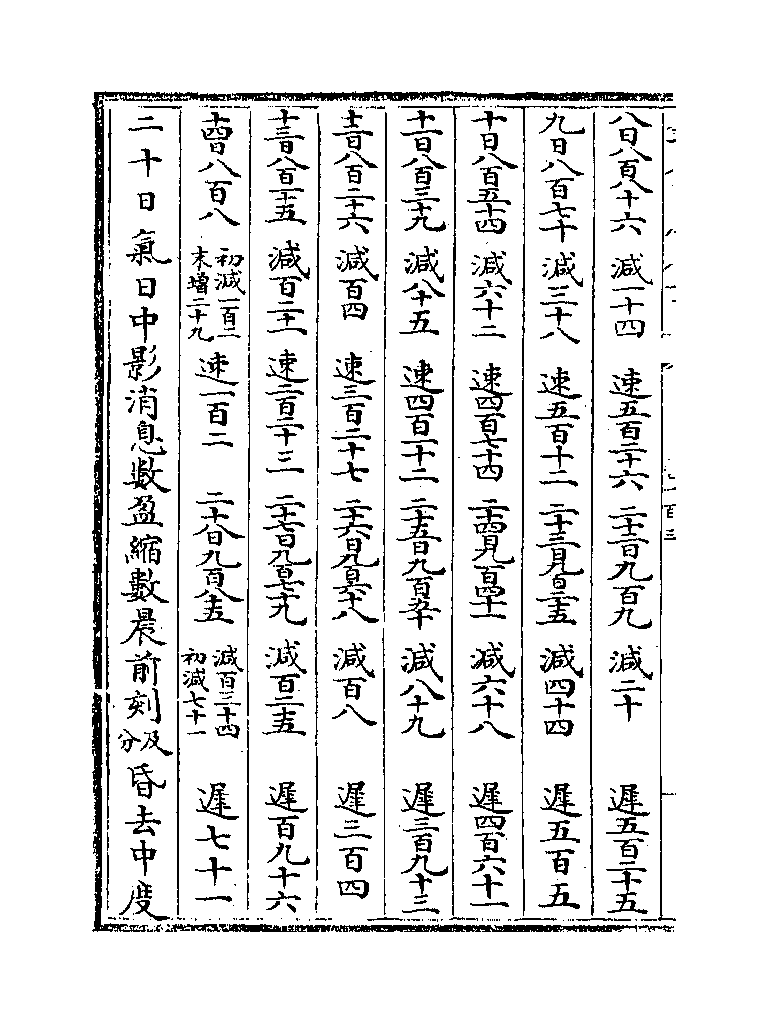 八日八百八十六 減一十四 速五百二十六 二十二日九百九 減二十 遲五百二十五
九日八百七十 減三十八 速五百十二 二十三日九百二十五 減四十四 遲五百五
十日八百五十四 減六十二 速四百七十四 二十四日九百四十一 減六十八 遲四百六十一
十一日八百三十九 減八十五 速四百一十二 二十五日九百五十 減八十九 遲三百九十三
十二日八百二十六 減百四 速三百二十七 二十六日九百六十八 減百八 遲三百四
十三日八百一十五 減百二十一 速二百二十三 二十七日九百七十九 減百二十五 遲百九十六
十四日八百八 初減一百二 末增二十九 速一百二 二十八日九百八十五 減百三十四 初減七十一 遲七十一
二十日氣日中影消息數盈縮數晨前刻及分昏去中度